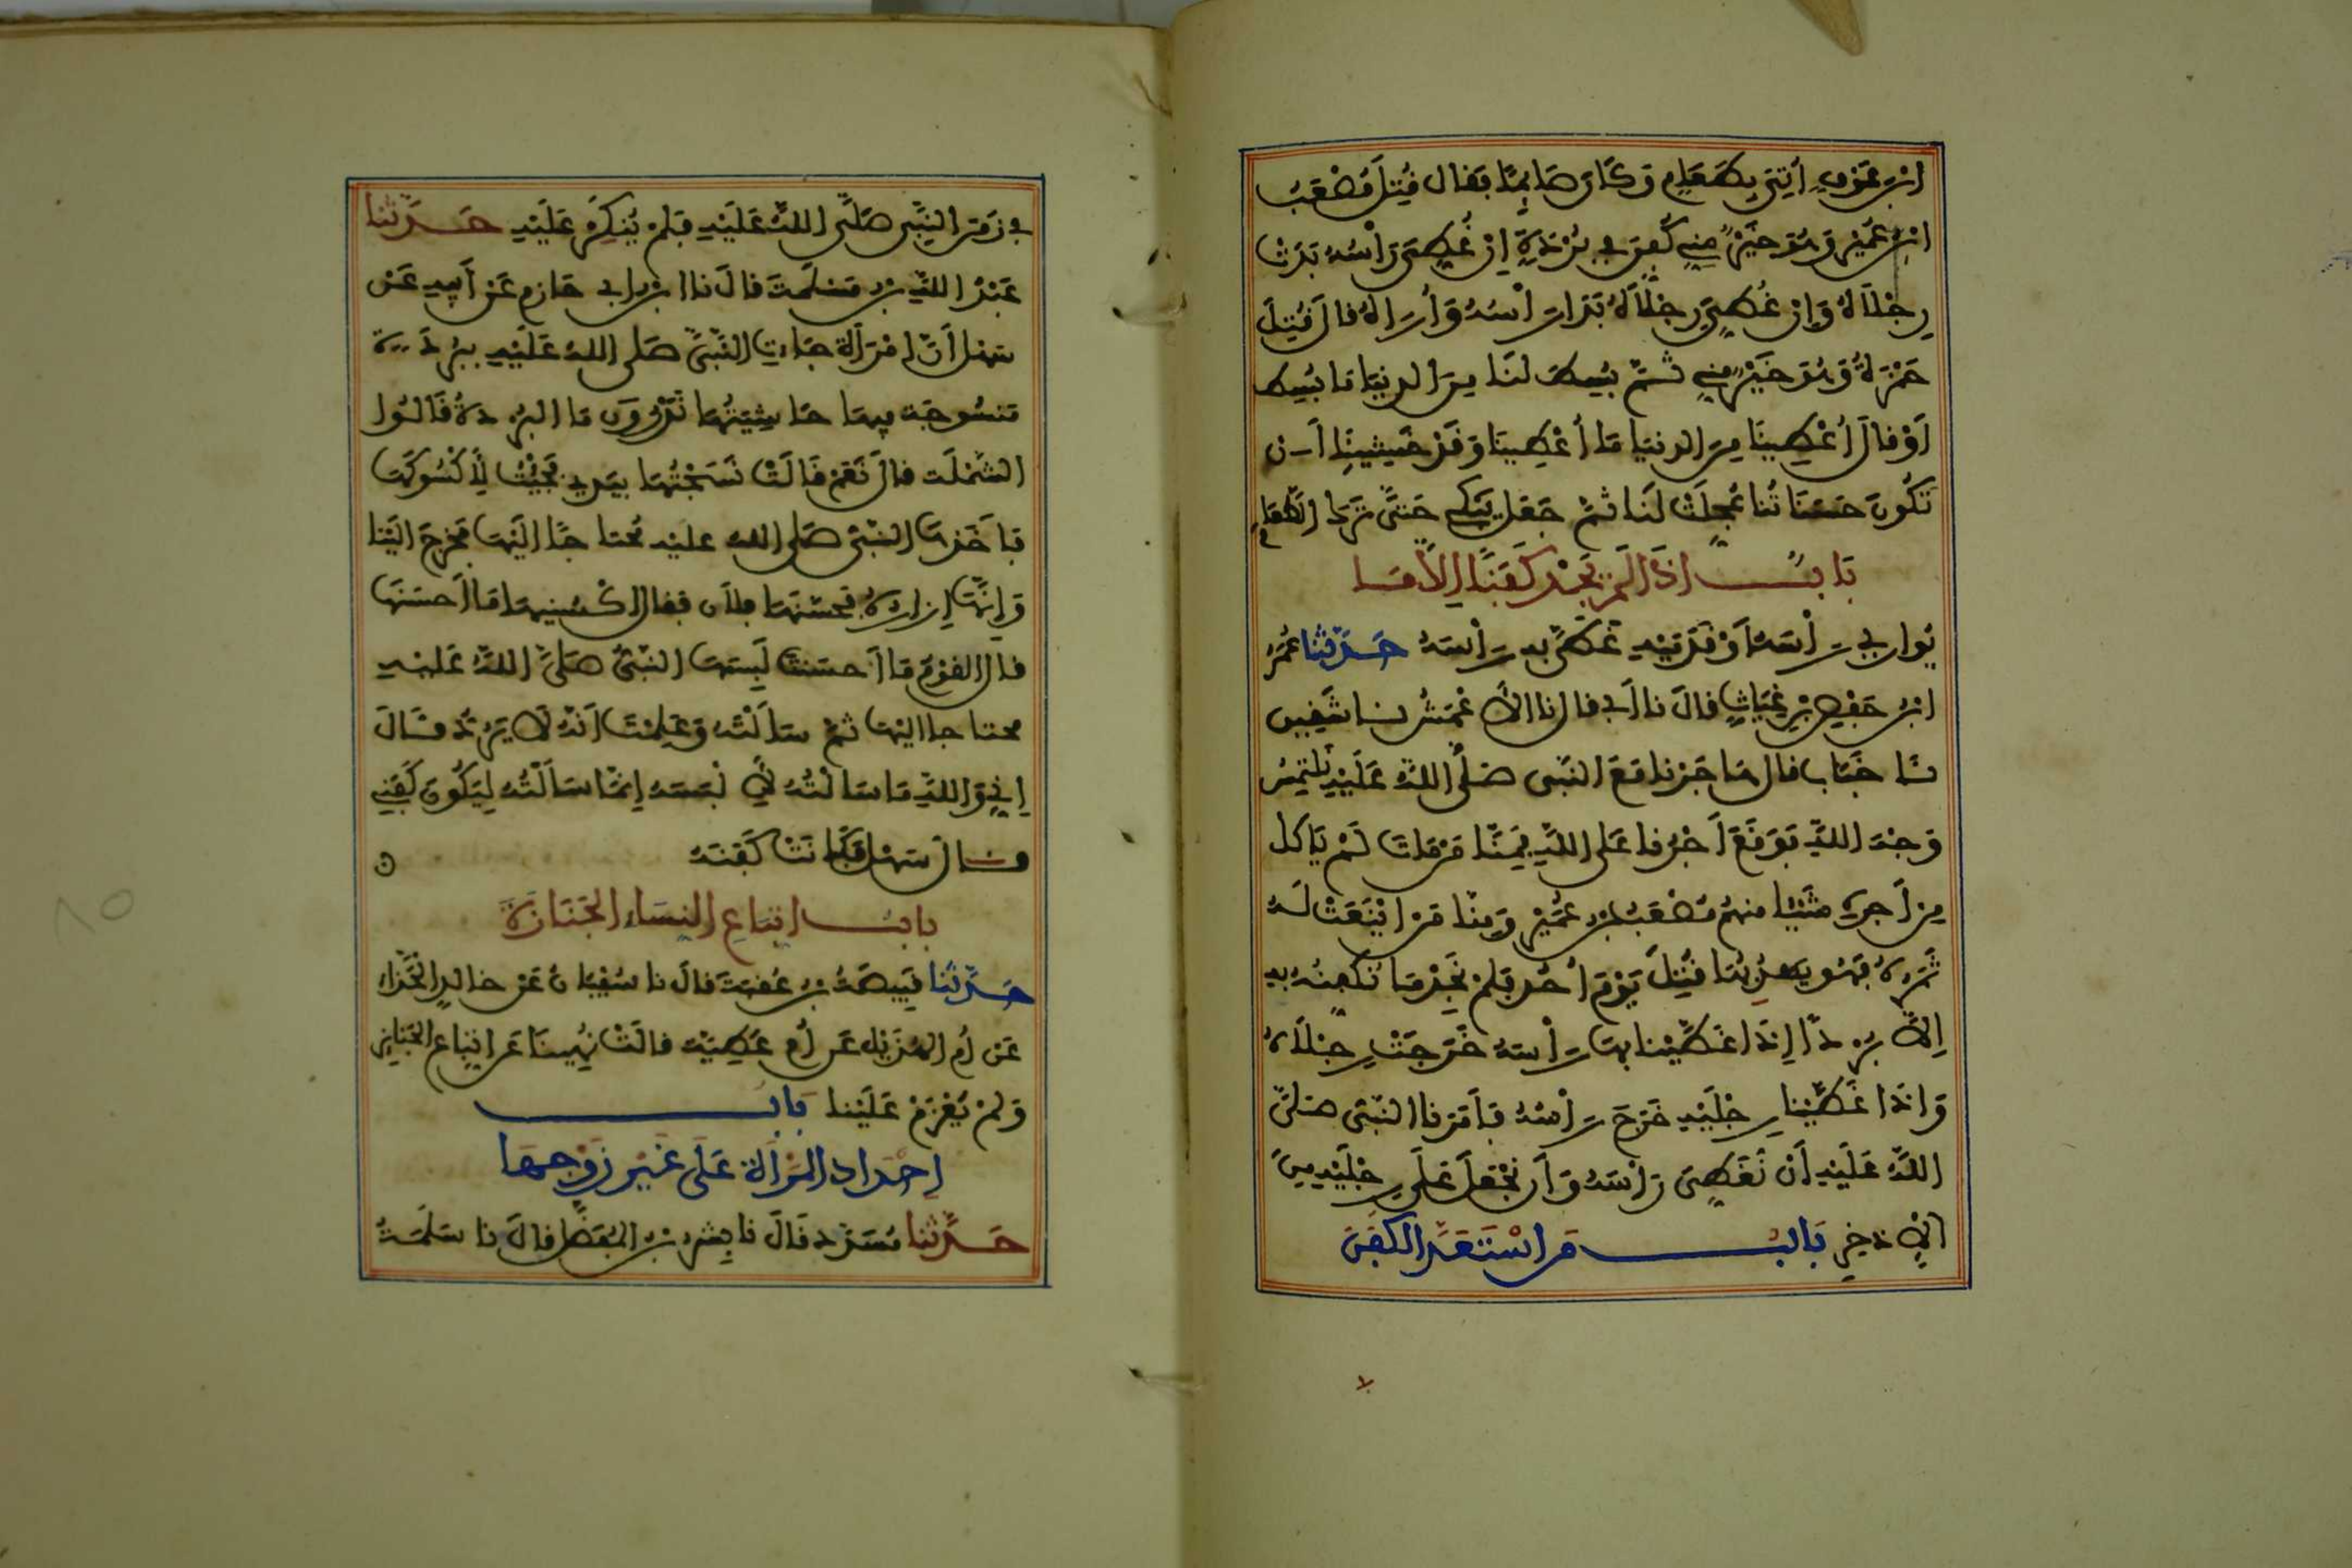 ابن عوف أتي بطعام وكان صايما فقال قتل مصعب
ابن عمير وهو خير مني كفن في بردة إن غطي رأسه بدت
رجلاه وإن غطي رجلاه بدا رأسه وأراه قال قتل
حمزة وهو خير مني ثم بسط لنا من الدنيا ما بسط
أو قال أعطينا من الدنيا ما أعطينا وقد خشينا أن
تكون حسناتنا عجلت لنا ثم جعل يبكي حتى ترك الطعام
باب إذا لم يجد كفنا إلا ما
يواري رأسه أو قدميه غطي به رأسه حدثنا عمر
ابن حفص بن غياث قال نا أبي قال نا الأعمش نا شقيق
نا خباب قال هاجرنا مع النبي صلى الله عليه نلتمس
وجه الله فوقع أجرنا على الله فمنا من مات لم يأكل
من أجره شيئا منهم مصعب بن عمير ومنا من اينعت له
ثمرته فهو يهدبها قتل يوم أحد فلم نجد ما نكفنه به
إلا بردة إذا غطينا بها رأسه خرجت رجلاه
وإذا غطينا رجليه خرج رأسه فأمرنا النبي صلى
الله عليه أن نغطي رأسه وأن نجعل على رجليه من
الإذخر باب من استعد الكفن
في زمن النبي صلى الله عليه فلم ينكر عليه حدثنا
عبد الله بن مسلمة قال نا ابن أبي حازم عن أبيه عن
سهل أن امرأة جاءت النبي صلى الله عليه ببردة
منسوجة فيها حاشيتها تدرون ما البردة قالوا
الشملة قال نعم قالت نسجتها بيدي فجئت لأكسوكها
فأخذها النبي صلى الله عليه محتاجا إليها فخرج إلينا
وإنها إزاره فحسنها فلان فقال اكسنيها ما أحسنها
قال القوم ما أحسنت لبسها النبي صلى الله عليه
محتاجا إليها ثم سألته وعلمت أنه لا يرد قال
إني والله ما سألته لألبسه إنما سألته ليكون كفني
قال سهل فكانت كفنه
باب اتباع النساء الجنازة
حدثنا قبيصة بن عقبة قال نا سفيان عن خالد الحذاء
عن أم الهذيل عن أم عطية قالت نهينا عن اتباع الجنايز
ولم يعزم علينا باب
إحداد المرأة على غير زوجها
حدثنا مسدد قال نا بشر بن المفضل قال نا سلمة